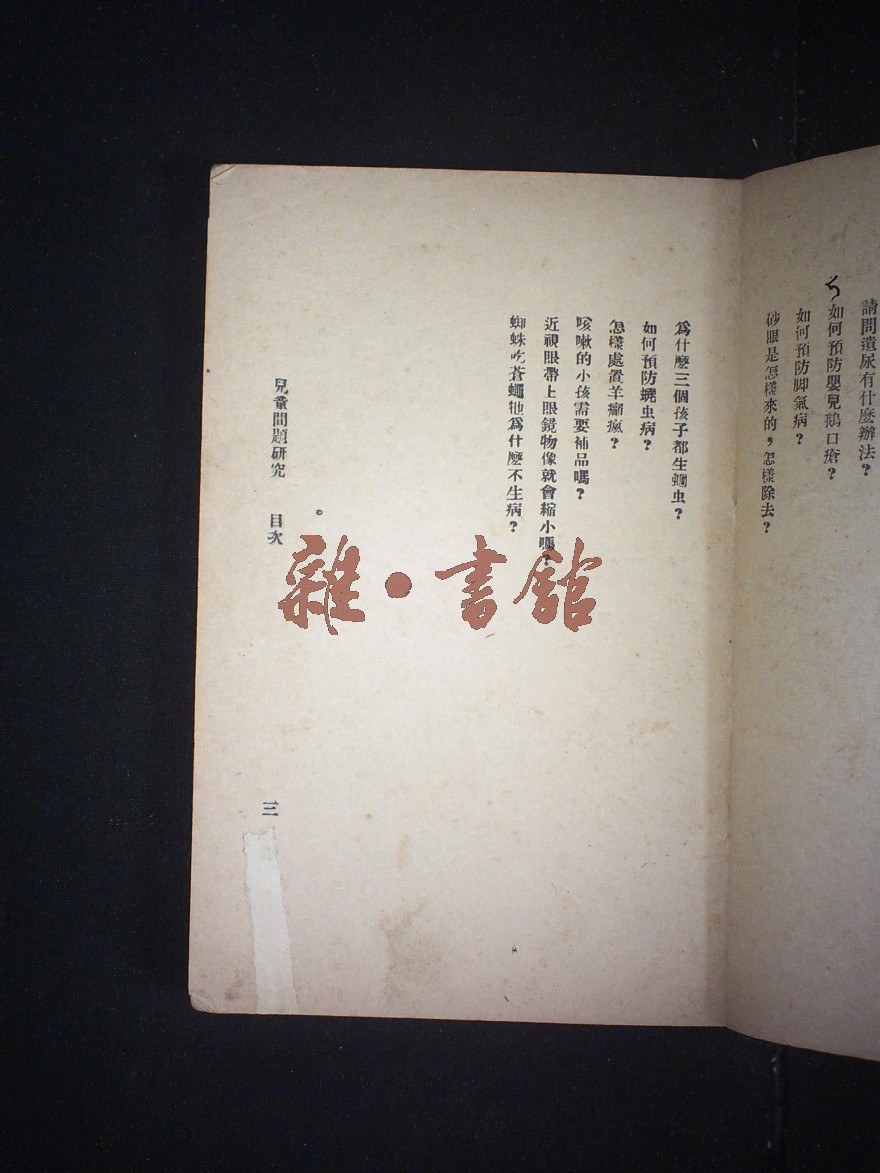 請問遺尿有什麼辦法？
如何預防嬰兒鵝口瘡？
如何預防脚氣病？
砂眼是怎樣來的，怎樣除去？
爲什麼三個孩子都生蛔虫？
如何預防蟯虫病？
怎樣處置羊癲瘋？
咳嗽的小孩需要補品嗎？
近視眼帶上眼鏡物像就會縮小嗎？
蜘蛛吃蒼蠅牠爲什麼不生病？
兒童問題研究　目次
三
雜·書館